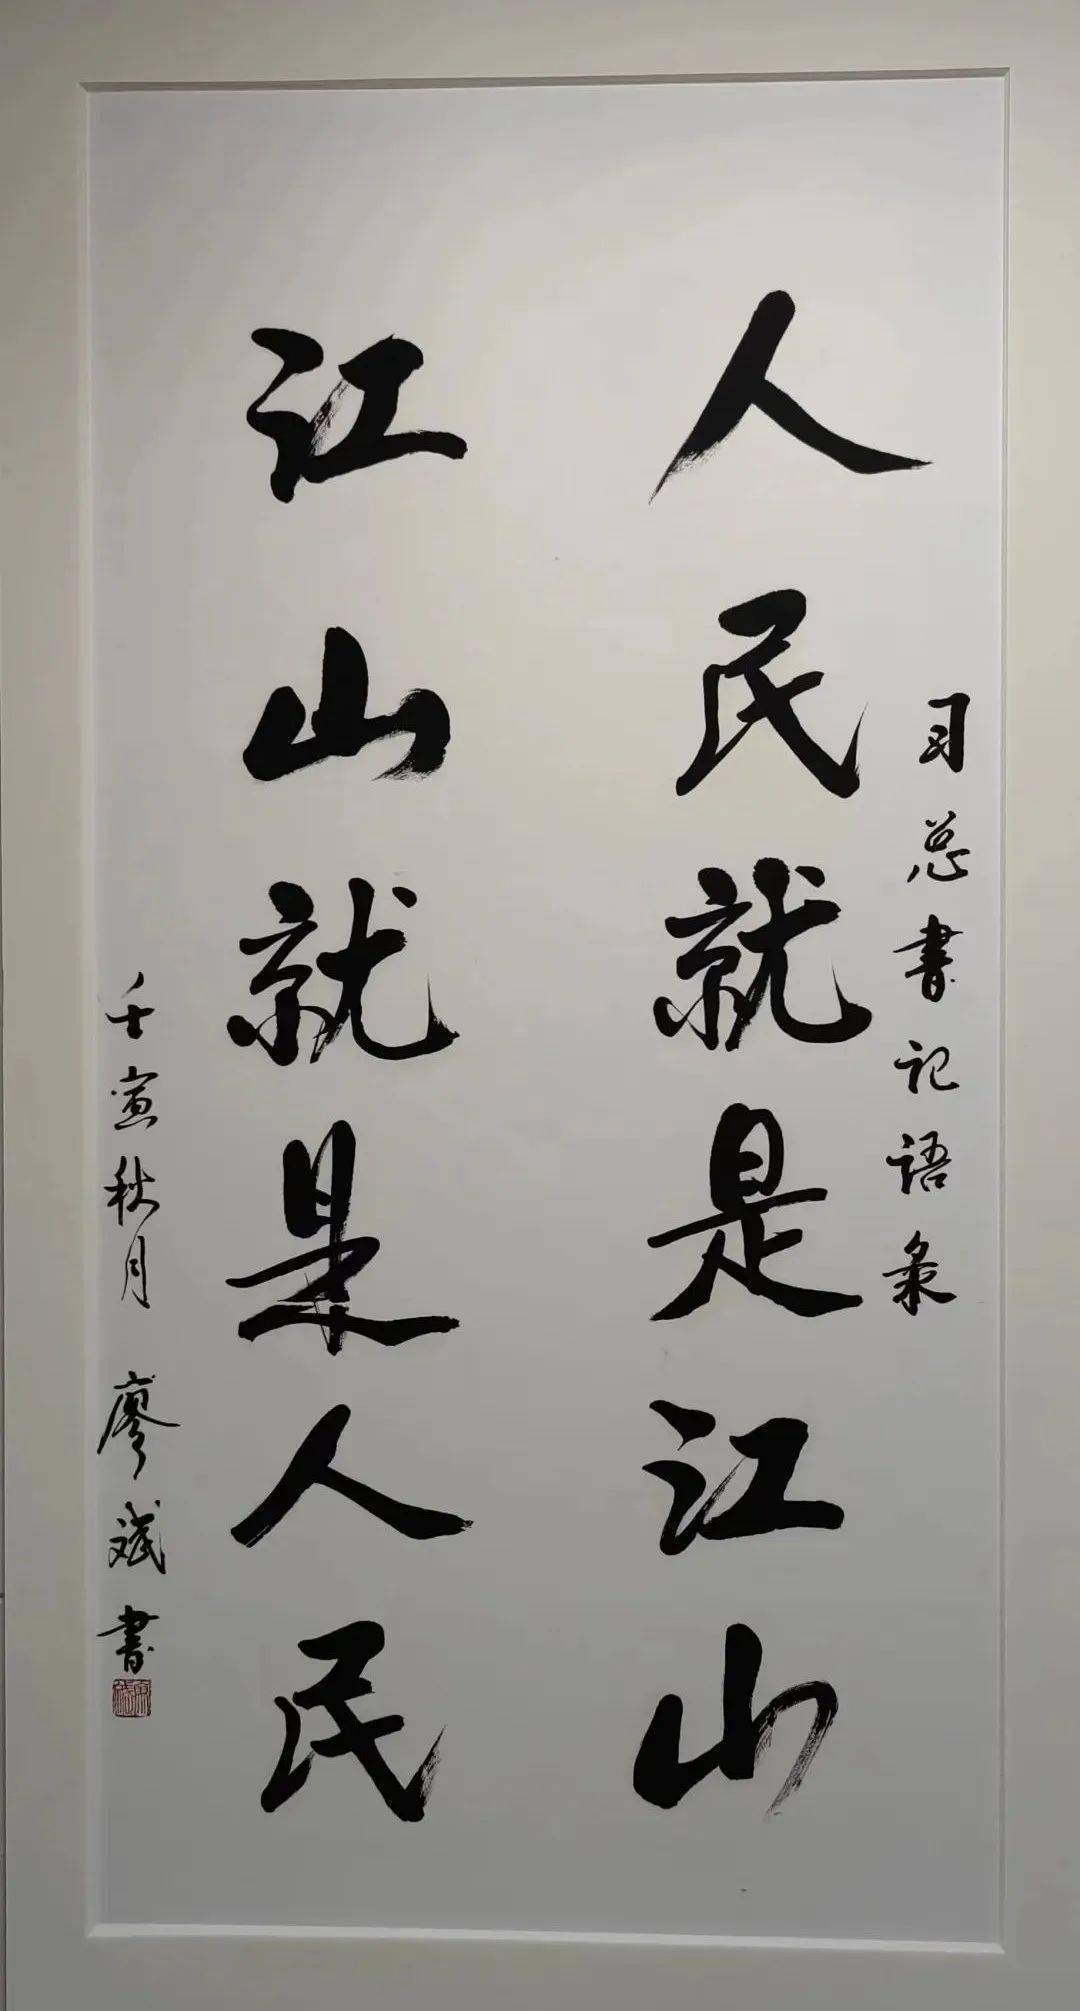 习总书记语录
人民就是江山
江山就是人民
壬寅秋月 廖斌書